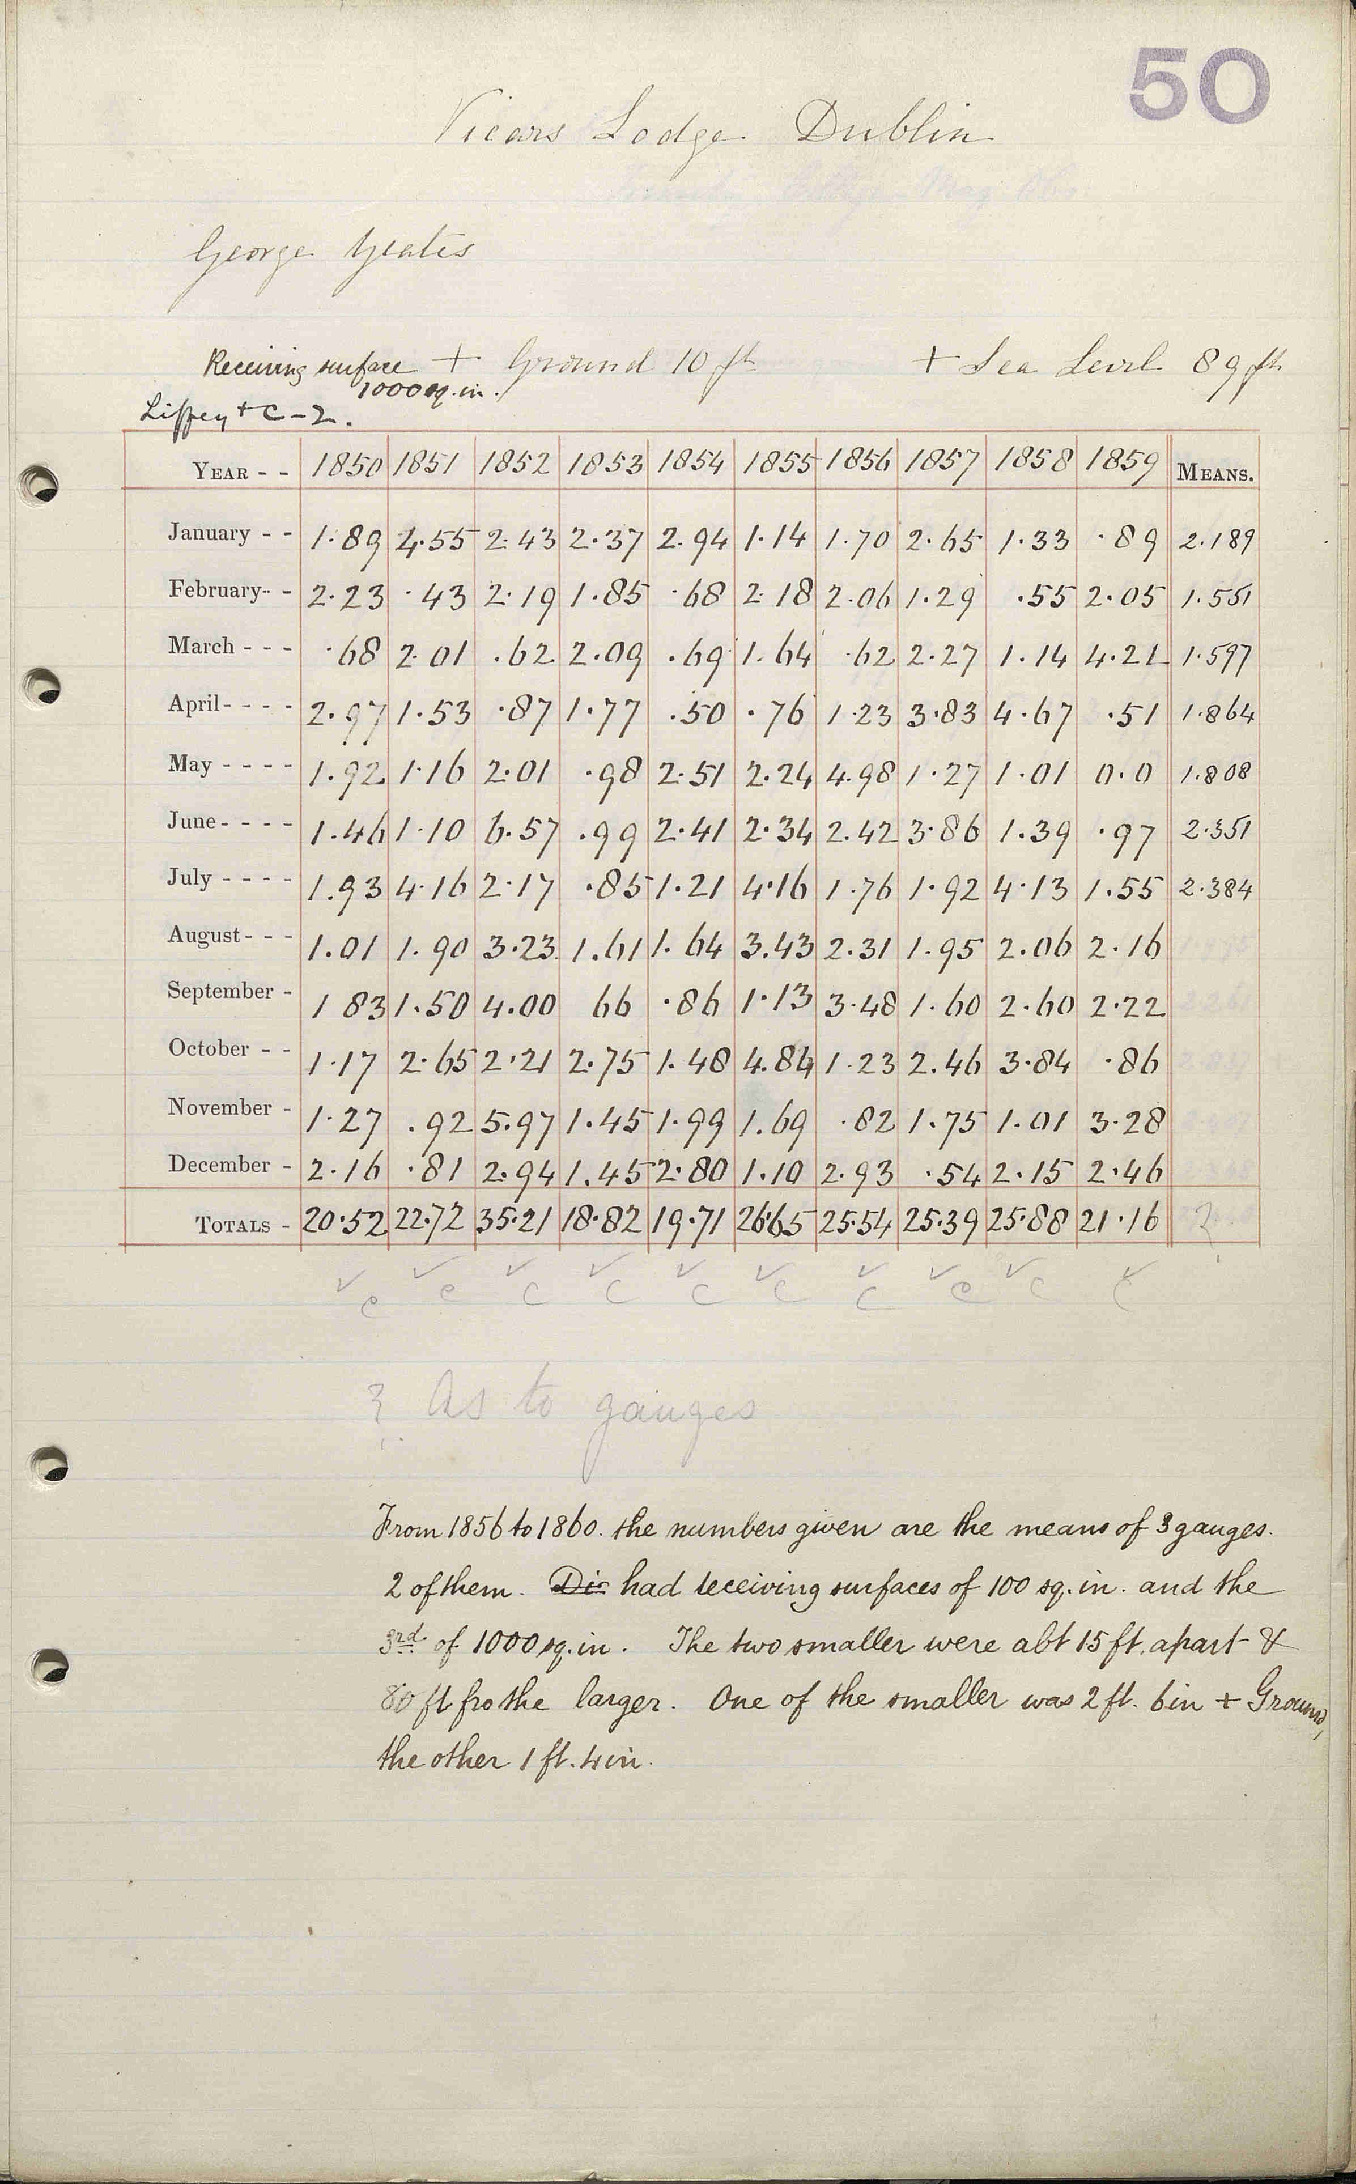 50
Vicars Lodge Dublin
George Yeates
Receiving surface + Ground 10 ft + Sea Level 89 ft
1000 sq. in.
Liffey + C - 2.
YEAR - - 1850 1851 1852 1853 1854 1855 1856 1857 1858 1859 MEANS.
January - - 1.89 4.55 2.43 2.37 2.94 1.14 1.70 2.65 1.33 .89 2.189
February- - 2.23 .43 2.19 1.85 .68 2.18 2.06 1.29 .55 2.05 1.551
March - - - .68 2.01 .62 2.09 .69 1.64 .62 2.27 1.14 4.21 1.597
April- - - - 2.97 1.53 .87 1.77 .50 .76 1.23 3.83 4.67 .51 1.864
May - - - - 1.92 1.16 2.01 .98 2.51 2.24 4.98 1.27 1.01 0.0 1.808
June- - - - 1.46 1.10 6.57 .99 2.41 2.34 2.42 3.86 1.39 .97 2.351
July - - - - 1.93 4.16 2.17 .85 1.21 4.16 1.76 1.92 4.13 1.55 2.384
August- - - 1.01 1.90 3.23 1.61 1.64 3.43 2.31 1.95 2.06 2.16
September - 1 83 1.50 4.00 66 .86 1.13 3.48 1.60 2.60 2.22
October - - 1.17 2.65 2.21 2.75 1.48 4.84 1.23 2.46 3.84 .86
November - 1.27 .92 5.97 1.45 1.99 1.69 .82 1.75 1.01 3.28
December - 2.16 .81 2.94 1.45 2.80 1.10 2.93 .54 2.15 2.46
TOTALS - 20.52 22.72 35.21 18.82 19.71 26.65 25.54 25.39 25.88 21.16 ?
✓ ✓ ✓ ✓ ✓ ✓ ✓ ✓ ✓ ✓
c c c c c c c c c
? As to gauges
From 1856 to 1860. the numbers given are the means of 3 gauges.
2 of them. Dis had receiving surfaces of 100 sq. in. and the
3rd of 1000 sq. in. The two smaller were abt 15 ft. apart &
80 ft fro the larger. One of the smaller was 2 ft. 6 in + Ground,
the other 1 ft. 4 in.